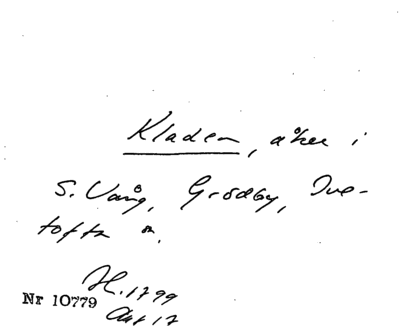 Kladen, åker i
S. Vång, Grödby, Tue-
tofta n.
H. 1799
Akt 17
Nr 10779